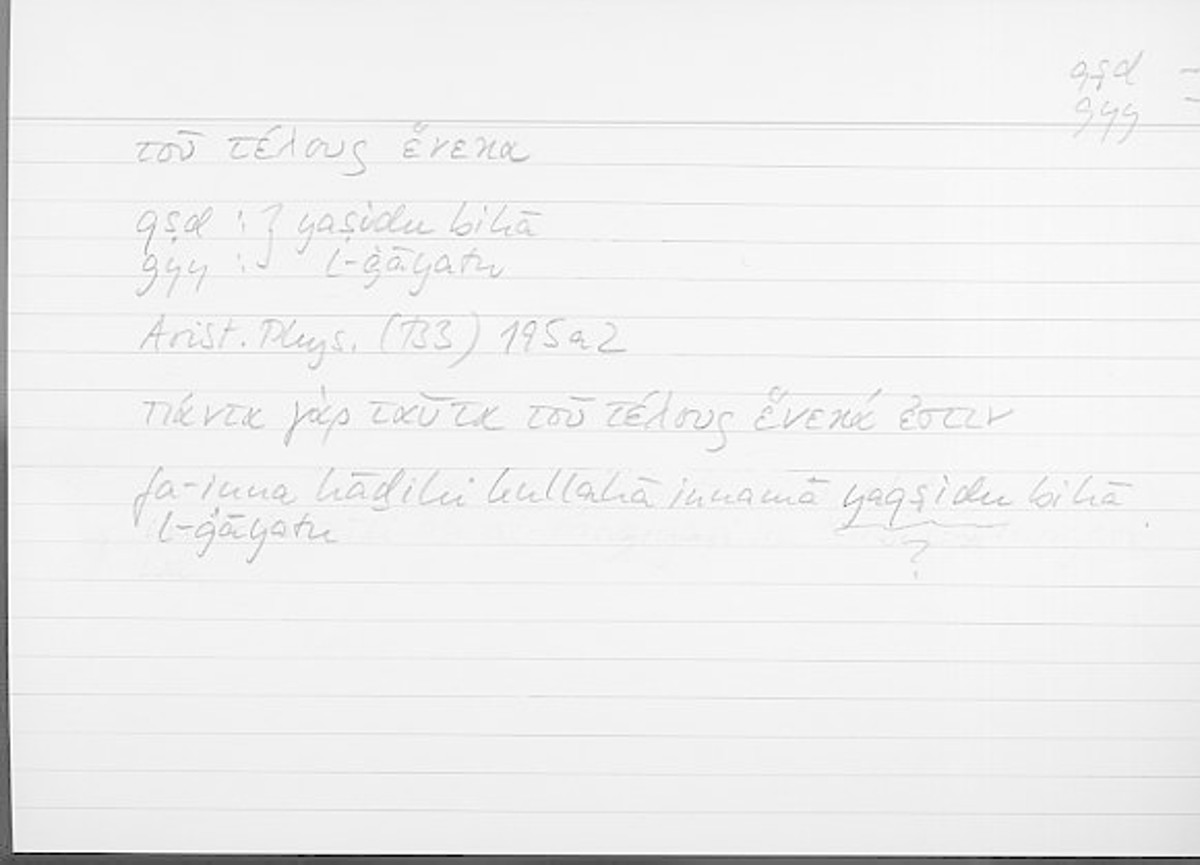 qṣd –
ġyy –
τοῦ τέλους ἕνεκα
qṣd : } yaṣidu bihā
ġyy : l-ġāyatu
Arist. Phys. (B3) 195a2
πάντα γὰρ ταῦτα τοῦ τέλους ἕνεκά ἐστιν
fa-inna hāḏihi kullahā innamā yaqṣidu bihā
l-ġāyatu
?